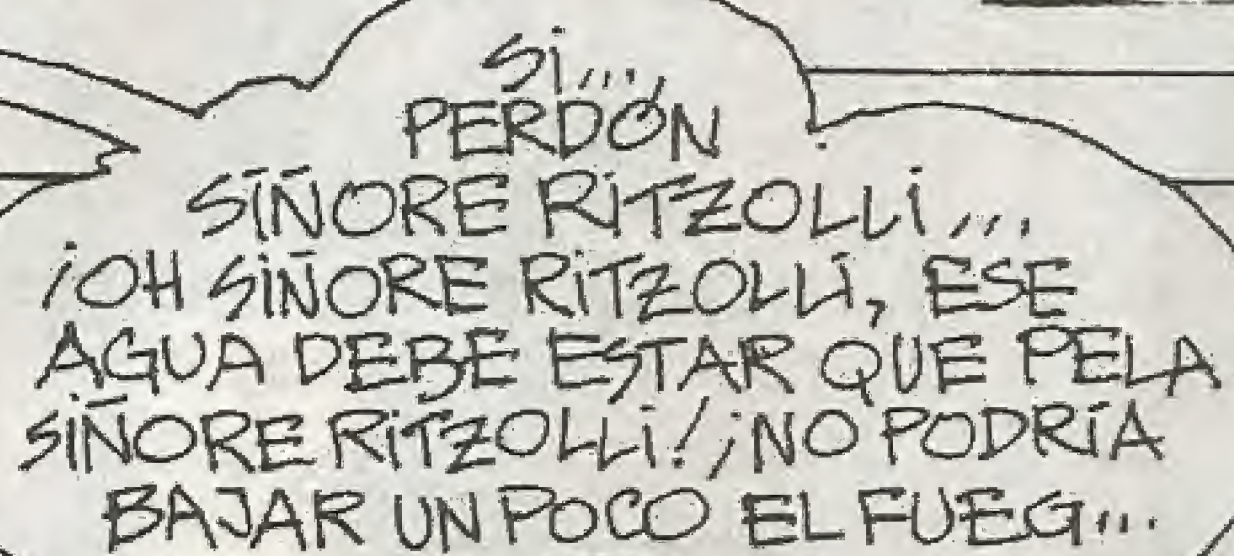 SI...
PERDÓN
SIÑORE RITZOLLI...
¡OH SIÑORE RITZOLLI, ESE
AGUA DEBE ESTAR QUE PELA
SIÑORE RITZOLLI! ¡NO PODRÍA
BAJAR UN POCO EL FUEG...